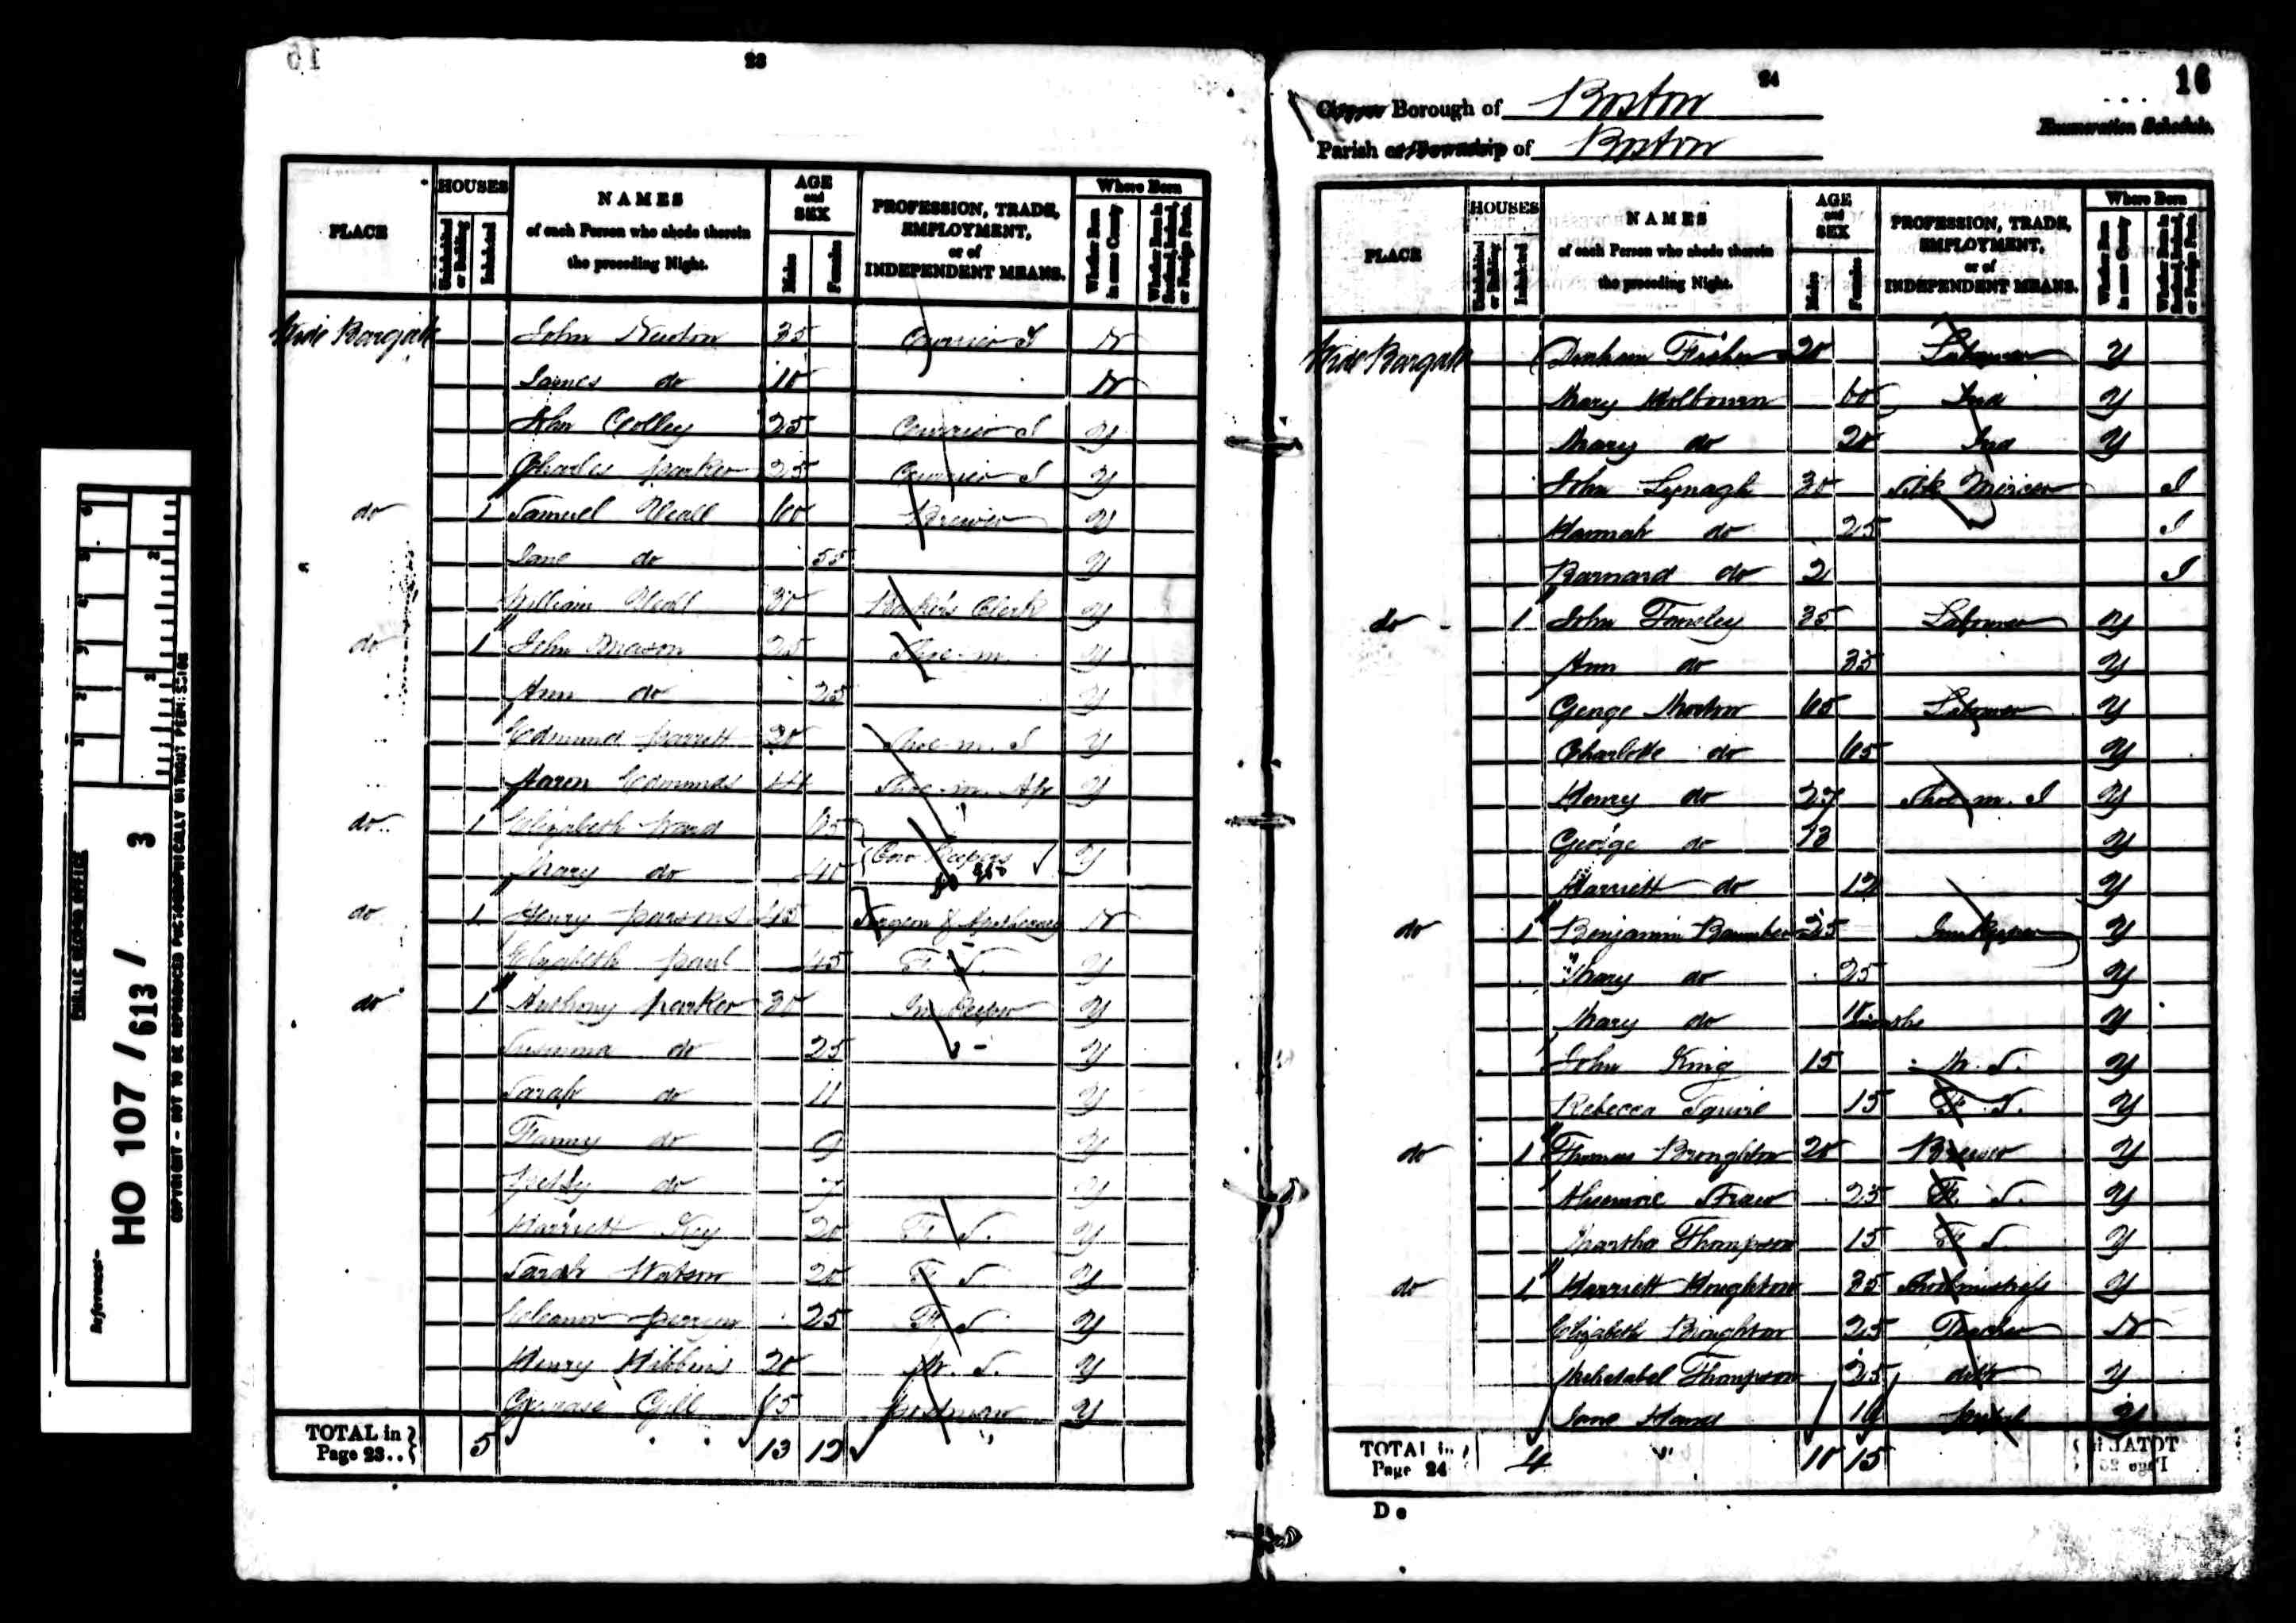 23
PLACE
HOUSES
Uninhabited or Building
Inhabited
NAMES
of each Person who abode therein
the preceding Night.
AGE
and
SEX
Males
Females
PROFESSION, TRADE,
EMPLOYMENT,
or of
INDEPENDENT MEANS.
Where Born
Whether Born in same County
Whether Born in Scotland, Ireland, or Foreign Parts.
Wide Bargate John Newton 35 Currier J N
James do 10 N
John Colley 25 Currier J Y
Charles Parker 25 Currier J Y
do 1 Samuel Veall 60 Brewer Y
Jane do 55 Y
William Veall 30 Clerk Y
do 1 John Mason 25 Shoe m. Y
Ann do 25 Y
Edmund Parrott 20 Shoe m. J Y
Aaron Edmunds 14 Shoe m. Ap Y
do 1 Elizabeth Ward 45
Mary do 40 Cow Keepers Y
do 1 Henry Parsons 45 Surgeon & Apothecary N
Elizabeth Paul 45 F. S. Y
do 1 Anthony Parker 30 Inn Keeper Y
Susanna do 25 Y
Sarah do 11 Y
Fanny do 9 Y
Betsy do 7 Y
Harriett Key 20 F. S. Y
Sarah Watson 20 F. S. Y
Eleanor Perryn 25 F. S. Y
Henry Hibbins 20 M. S. Y
Gervase Gill 65 Postman Y
TOTAL in Page 23.. 5 13 12
24
16
City or Borough of Boston
Enumeration Schedule.
Parish or Township of Boston
PLACE
HOUSES
Uninhabited or Building
Inhabited
NAMES
of each Person who abode therein
the preceding Night.
AGE
and
SEX
Males
Females
PROFESSION, TRADE,
EMPLOYMENT,
or of
INDEPENDENT MEANS.
Where Born
Whether Born in same County
Whether Born in Scotland, Ireland, or Foreign Parts.
Wide Bargate Fisher 20 Labourer Y
Mary Holbourn 60 Ind Y
Mary do 20 Ind Y
John Lynagh 30 Silk Mercer I
Hannah do 25 I
Barnard do 2 I
do 1 John Tamsley 35 Labourer Y
Ann do 35 Y
George Morton 65 Labourer Y
Charlotte do 65 Y
Henry do 27 Shoe m. J Y
George do 13 Y
Harriett do 12 Y
do 1 Benjamin Baumber 25 Inn Keeper Y
Mary do 25 Y
Mary do months Y
John King 15 M. S. Y
Rebecca Squire 15 F. S. Y
do 1 Thomas Broughton 20 Brewer Y
Straw 25 F. S. Y
Martha Thompson 15 F. S. Y
do 1 Harriett Houghton 35 Schoolmistress Y
Elizabeth Broughton 25 Teacher N
Mehetabel Thompson 25 ditto Y
Jane Hand Y
TOTAL in Page 24 4 10 15
D e
PUBLIC RECORD OFFICE
Reference:-
HO 107 / 613 / 3
COPYRIGHT - NOT TO BE REPRODUCED PHOTOGRAPHICALLY WITHOUT PERMISSION